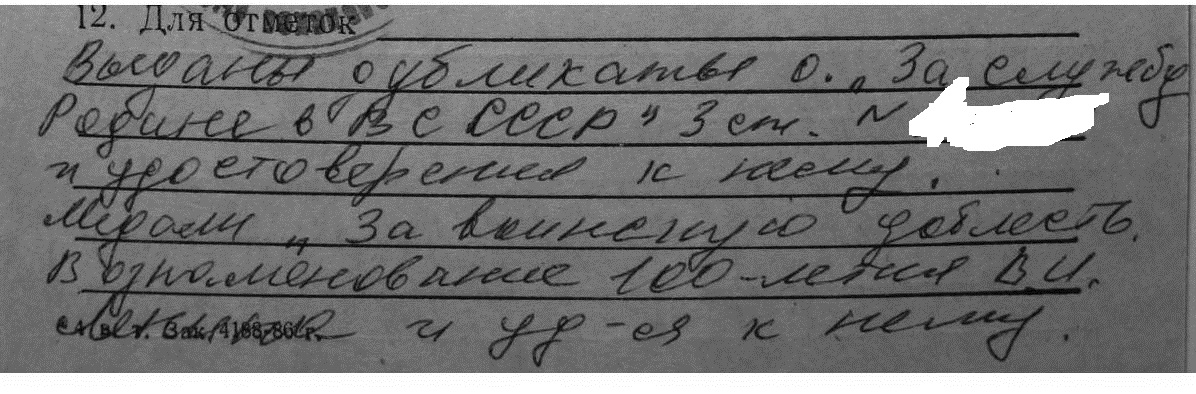 12. Для отметок
Выданы дубликаты о. „За службу
Родине в ВС СССР" 3 ст. N
и удостоверения к нему.
Медали „За воинскую доблесть.
В ознаменование 100-летия В.И.
Ленина и уд-ея к нему.
Зак. 4188-86 г.